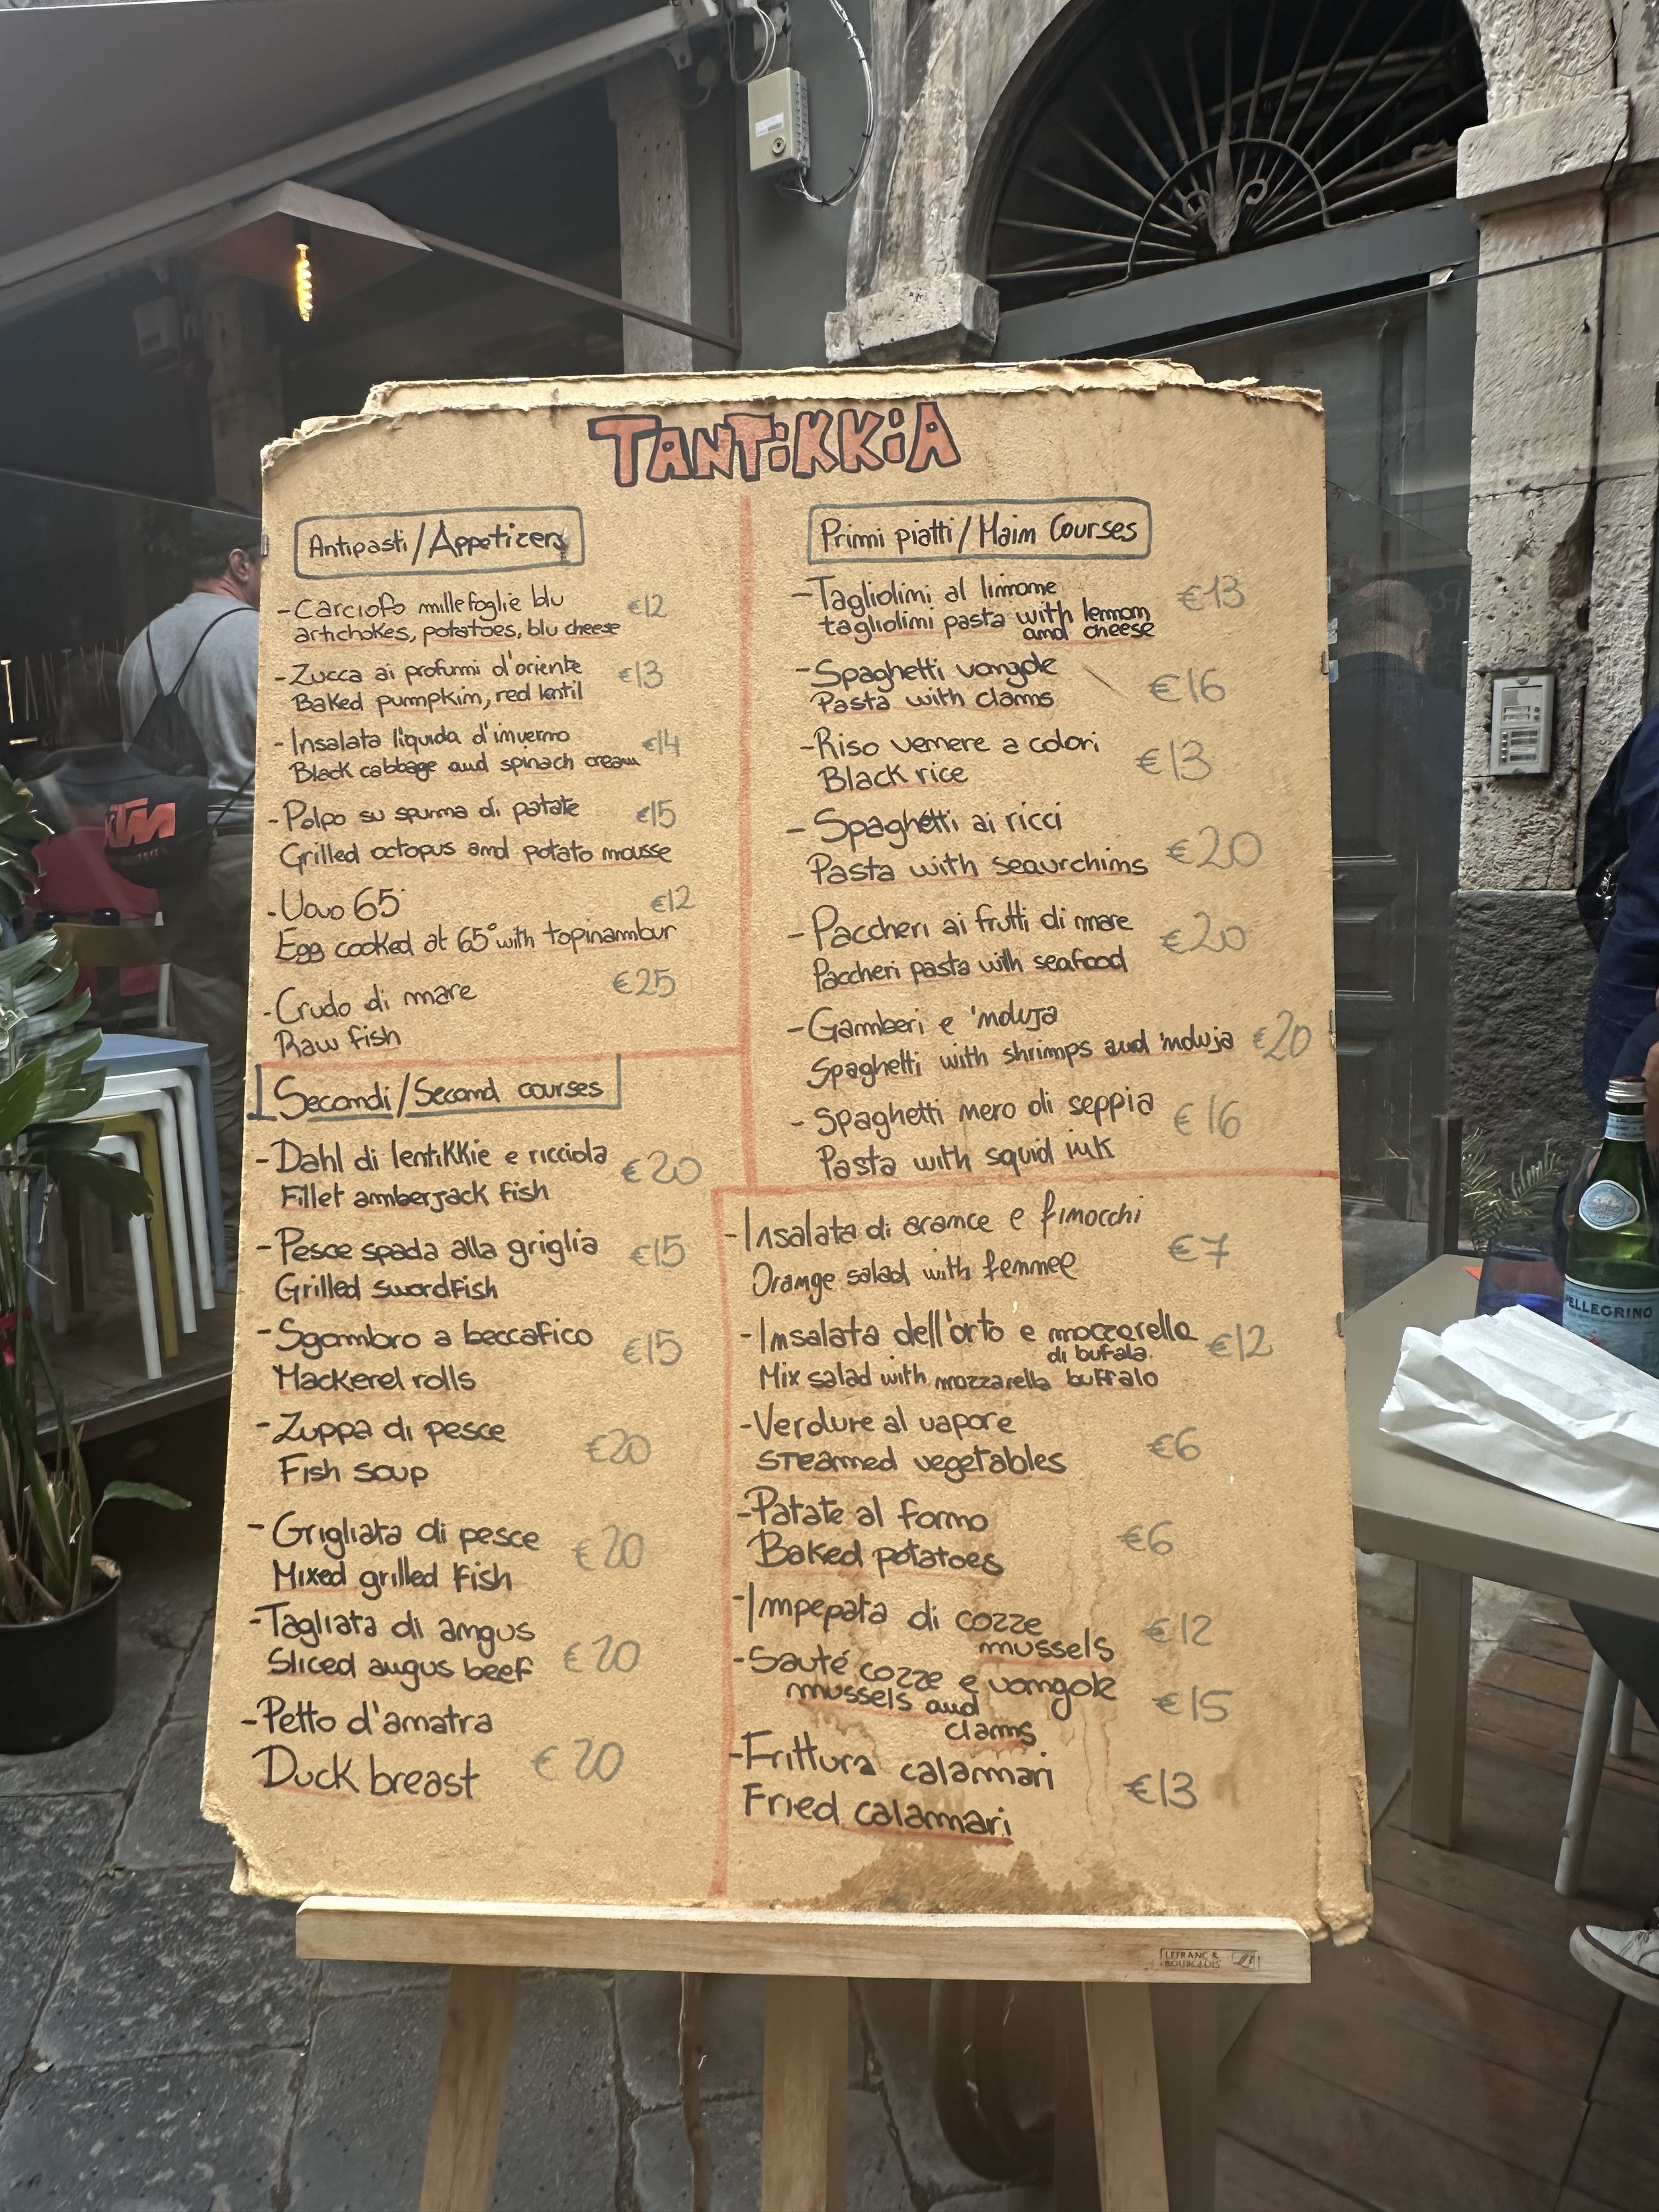 TANTiKKiA
Antipasti/Appeticers
-Carciofo millefoglie blu €12
artichokes, potatoes, blu cheese
-Zucca ai profumi d'oriente €13
Baked pumpkin, red lentil
-Insalata liquida d'inverno €14
Black cabbage and spinach cream
-Polpo su spuma di patate €15
Grilled octopus and potato mousse
-Uovo 65° €12
Egg cooked at 65° with topinambur
-Crudo di mare €25
Raw fish
Secondi/Second courses
-Dahl di lentiKKie e ricciola €20
Fillet amberjack fish
-Pesce spada alla griglia €15
Grilled swordfish
-Sgombro a beccafico €15
Mackerel rolls
-Zuppa di pesce €20
Fish soup
-Grigliata di pesce €20
Mixed grilled fish
-Tagliata di angus €20
Sliced angus beef
-Petto d'anatra
Duck breast €20
Primi piatti/Main Courses
-Tagliolini al limone €13
tagliolini pasta with lemon
and cheese
-Spaghetti vongole €16
Pasta with clams
-Riso venere a colori €13
Black rice
-Spaghetti ai ricci €20
Pasta with seaurchins
-Paccheri ai frutti di mare €20
Paccheri pasta with seafood
-Gamberi e 'nduja
Spaghetti with shrimps and 'nduja €20
-Spaghetti nero di seppia €16
Pasta with squid ink
-Insalata di arance e finocchi €7
Orange salad with fennel
-Insalata dell'orto e mozzarella €12
di bufala
Mix salad with mozzarella buffalo
-Verdure al vapore €6
steamed vegetables
-Patate al forno €6
Baked potatoes
-Impepata di cozze €12
mussels
-Sauté cozze e vongole €15
mussels and
clams
-Frittura calamari €13
Fried calamari
LEFRANC &
BOURGEOIS
KTM
PELLEGRINO